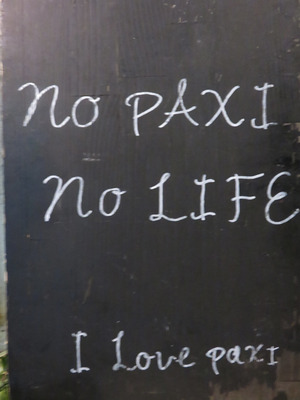 No PAXI
No LIFE
I Love paxi